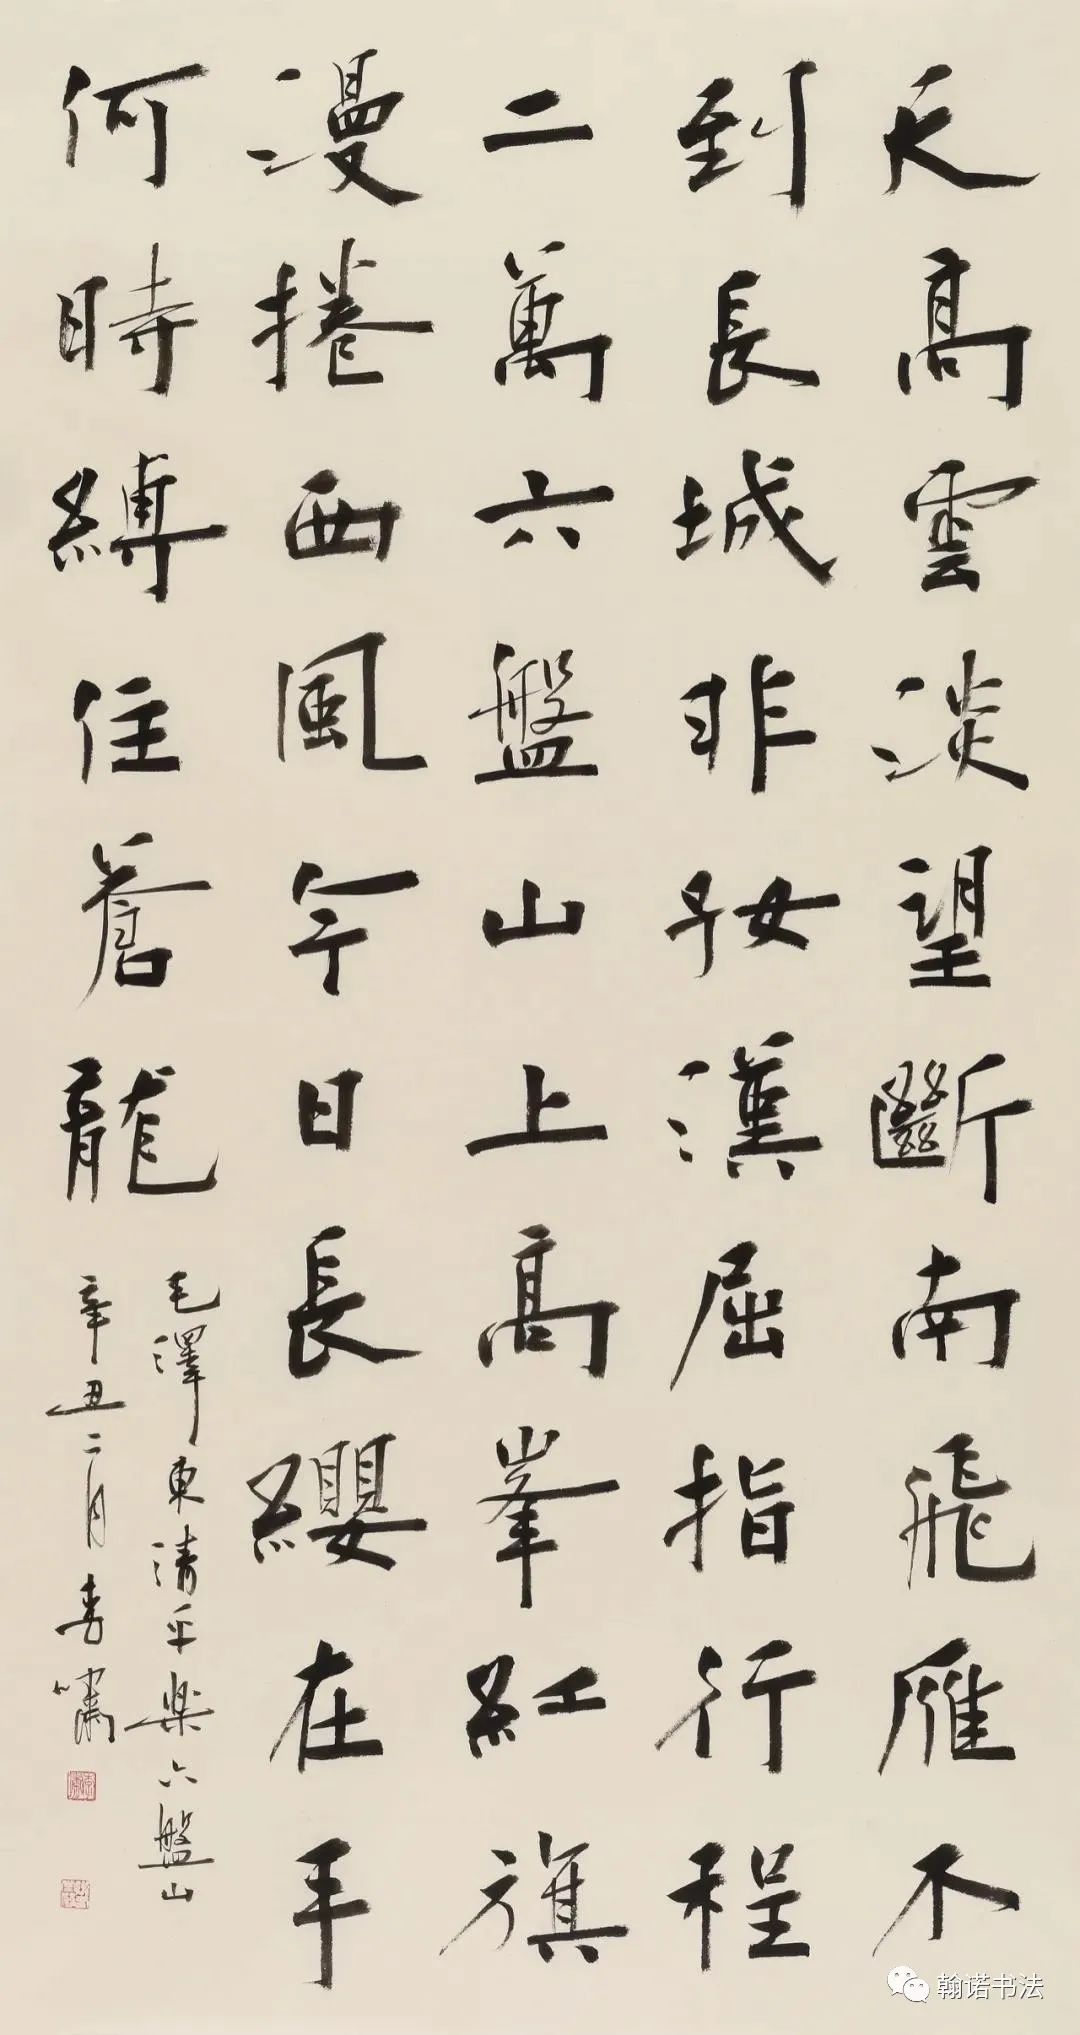 天高雲淡望斷南飛雁不
到長城非好漢屈指行程
二萬六盤山上高峯紅旗
漫捲西風今日長纓在手
何時縛住蒼龍
毛澤東清平樂六盤山
辛丑二月李嘯
翰诺书法